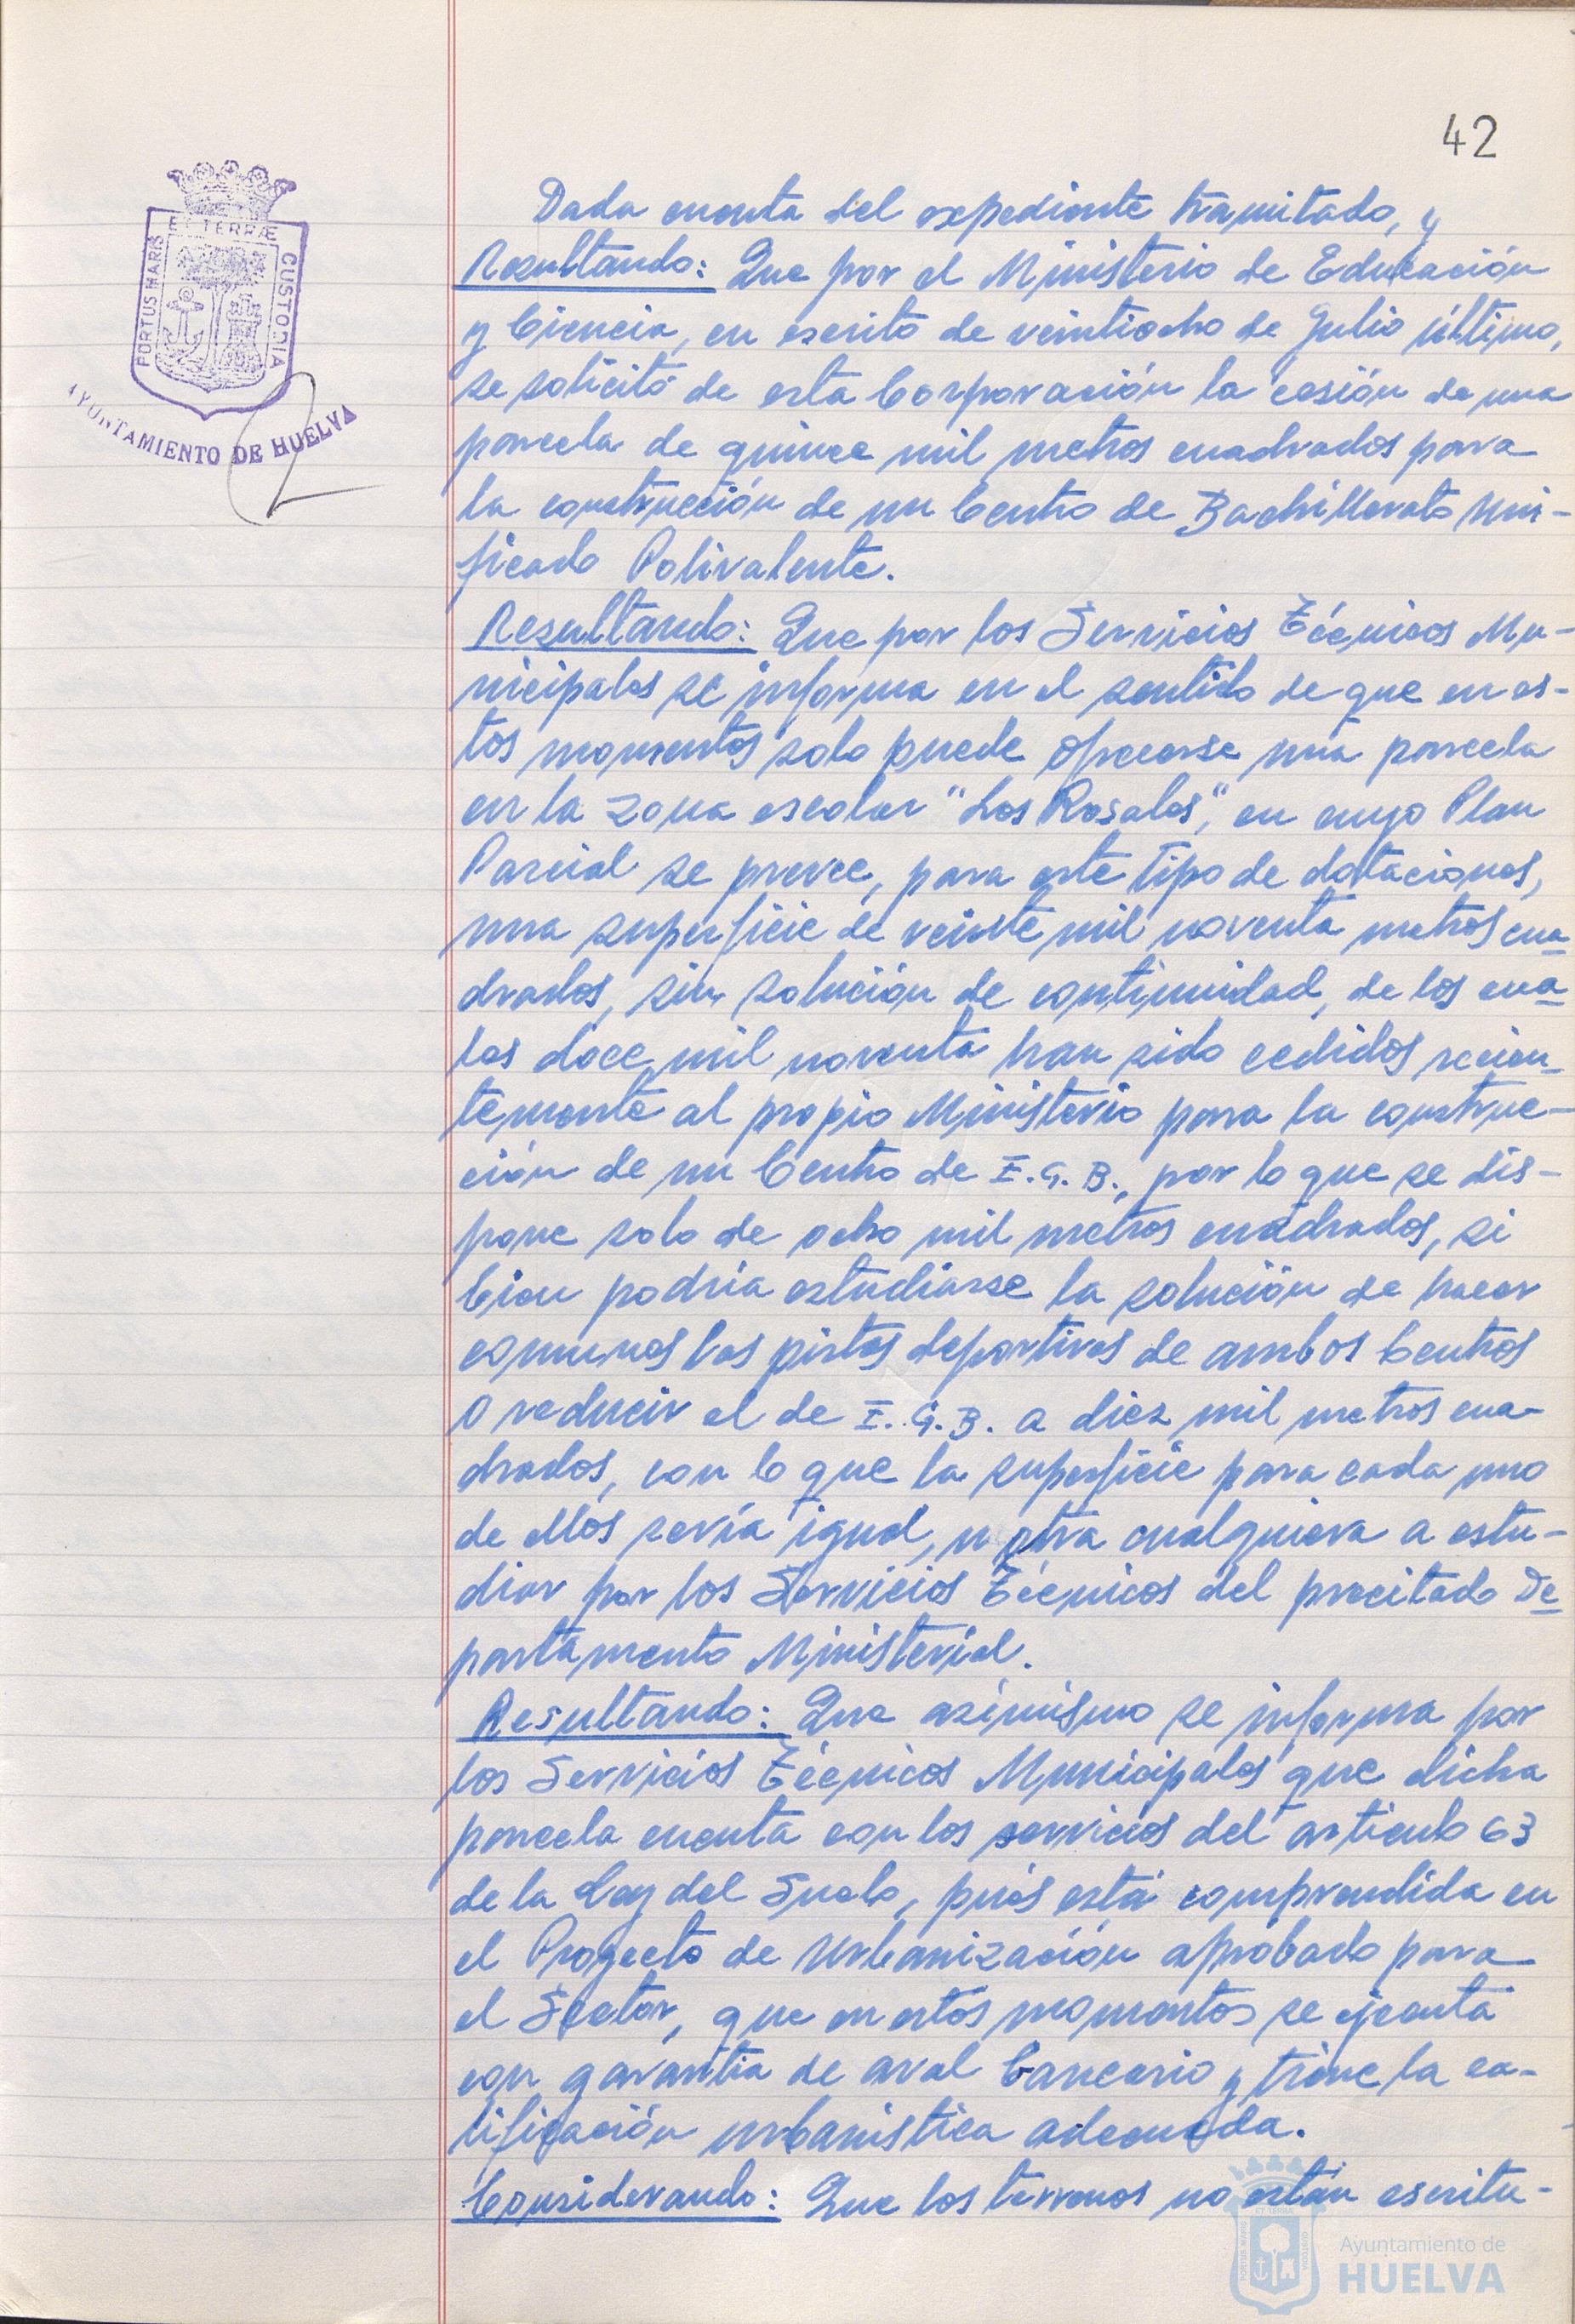 42
PORTUS MARIS
ET TERRÆ
CUSTODIA
AYUNTAMIENTO DE HUELVA
Dada cuenta del expediente tramitado, y
Resultando: Que por el Ministerio de Educación
y Ciencia, en escrito de veintiocho de Julio último,
se solicitó de esta Corporación la cesión de una
parcela de quince mil metros cuadrados para
la construcción de un Centro de Bachillerato Uni-
ficado Polivalente.
Resultando: Que por los Servicios Técnicos Mu-
nicipales se informa en el sentido de que en es-
tos momentos solo puede ofrecerse una parcela
en la zona escolar "Los Rosales", en cuyo Plan
Parcial se prevee, para este tipo de dotaciones,
una superficie de veinte mil noventa metros cua-
drados, sin solución de continuidad, de los cua-
les doce mil noventa han sido cedidos recien-
temente al propio Ministerio para la construc-
ción de un Centro de E.G.B., por lo que se dis-
pone solo de ocho mil metros cuadrados, si
bien podría estudiarse la solución de hacer
comunes las pistas deportivas de ambos Centros
o reducir el de E.G.B. a diez mil metros cua-
drados, con lo que la superficie para cada uno
de ellos sería igual, u otra cualquiera a estu-
diar por los Servicios Técnicos del precitado De-
partamento Ministerial.
Resultando: Que asimismo se informa por
los Servicios Técnicos Municipales que dicha
parcela cuenta con los servicios del articulo 63
de la Ley del Suelo, pués está comprendida en
el Proyecto de Urbanización aprobado para
el Sector, que en estos momentos se ejecuta
con garantia de aval bancario y tiene la ca-
lificación urbanistica adecuada.
Considerando: Que los terrenos no están escritu-
Ayuntamiento de
HUELVA